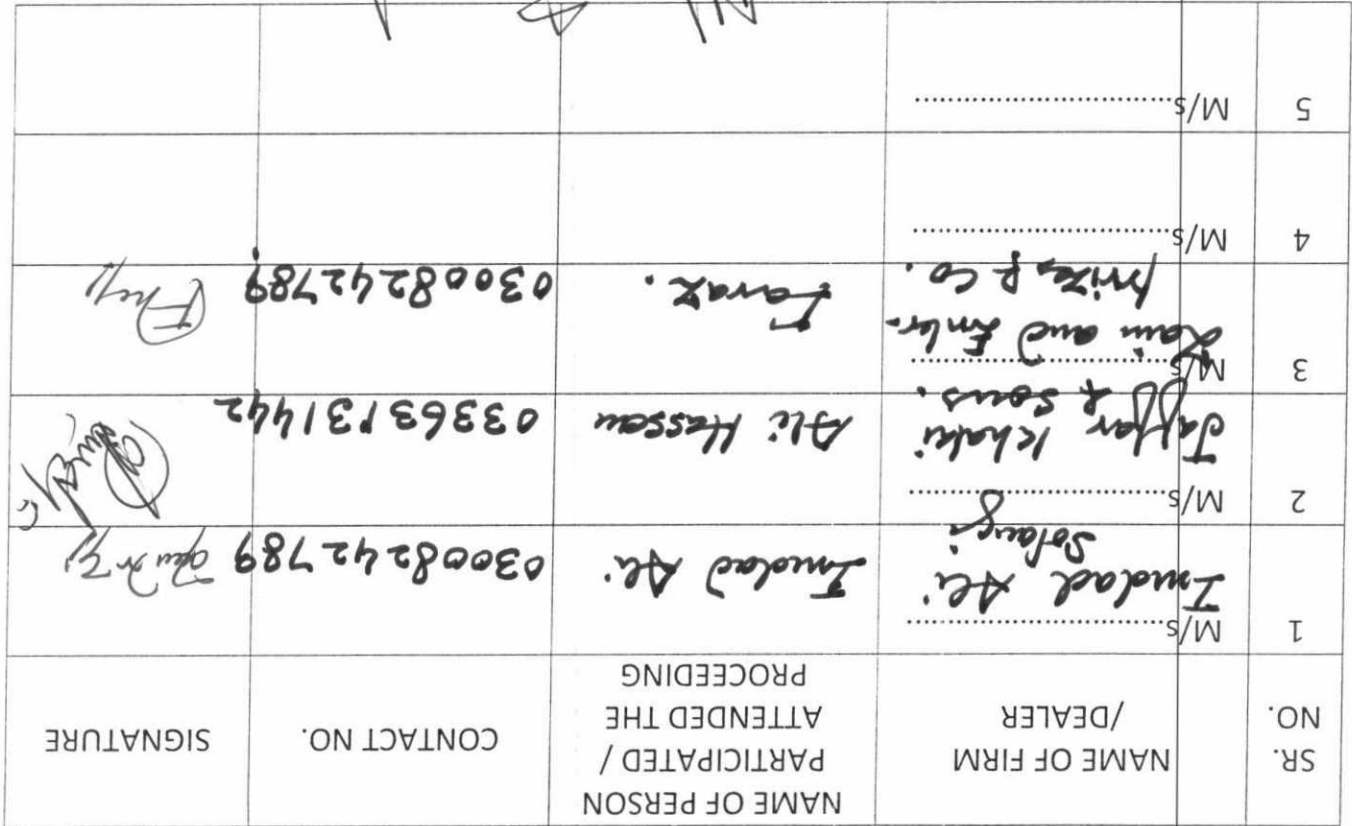 SR. NO.
NAME OF FIRM /DEALER
NAME OF PERSON PARTICIPATED / ATTENDED THE PROCEEDING
CONTACT NO.
SIGNATURE
1
M/s
Imdad Ali
Solangi
Imdad Ali
03008242789
2
M/s
Jaffar Khaki
& Sons.
Ali Hassan
03363131442
3
M/s
Zain and Enter-
prizes & Co.
Faraz.
03008242789
4
M/s
5
M/s